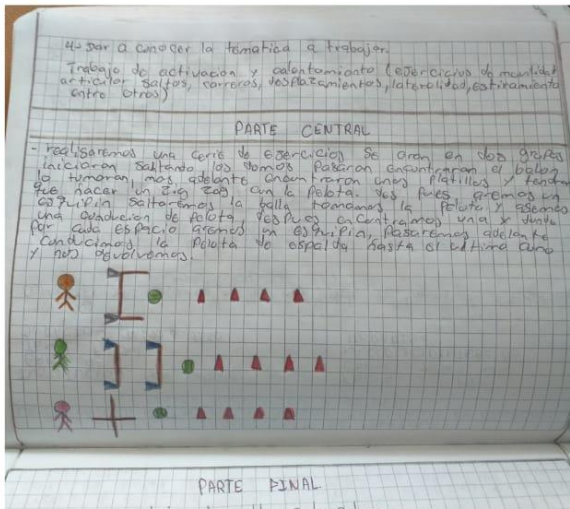 4- Dar a conocer la tematica a trabajar.
Trabajo de activación y calentamiento (ejercicios de movilidad
articular saltos, carreras, desplazamientos, lateralidad, estiramiento
entre otros)
PARTE CENTRAL
- realisaremos una cerie de ejercicios se aran en dos grupos
iniciaran saltando los domos pasaran encontraran el balon
lo tomaran mas adelante encontraron unos platillos y tendra
que hacer un zig zag con la pelota. des pues aremos un
esquipin saltaremos la balla tomamos la pelota y asemos
una conducion de pelota, despues encontramos una x donde
por cada espacio aremos un esquipin, pasaremos adelante
conducimos la pelota de espalda hasta el ultimo cono
y nos devolvemos.
PARTE FINAL